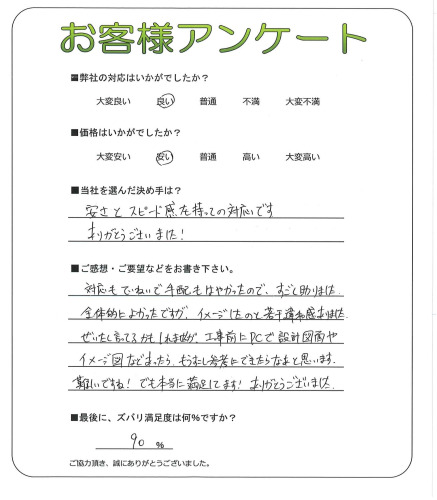 お客様アンケート
■弊社の対応はいかがでしたか？
大変良い 良い 普通 不満 大変不満
■価格はいかがでしたか？
大変安い 安い 普通 高い 大変高い
■当社を選んだ決め手は？
安さとスピード感を持っての対応です
ありがとうございました!
■ご感想・ご要望などをお書き下さい。
対応もていねいで手配もはやかったので、すごく助かりました
全体的によかったですが、イメージしたのと若干違和感ありました
ぜいたく言ってるかもしれませんが、工事前にPCで設計図面や
イメージ図などあったら、もう少し参考にできたらなぁと思います。
難しいですね! でも本当に満足してます! ありがとうございました
■最後に、ズバリ満足度は何%ですか？
90 %
ご協力頂き、誠にありがとうございました。